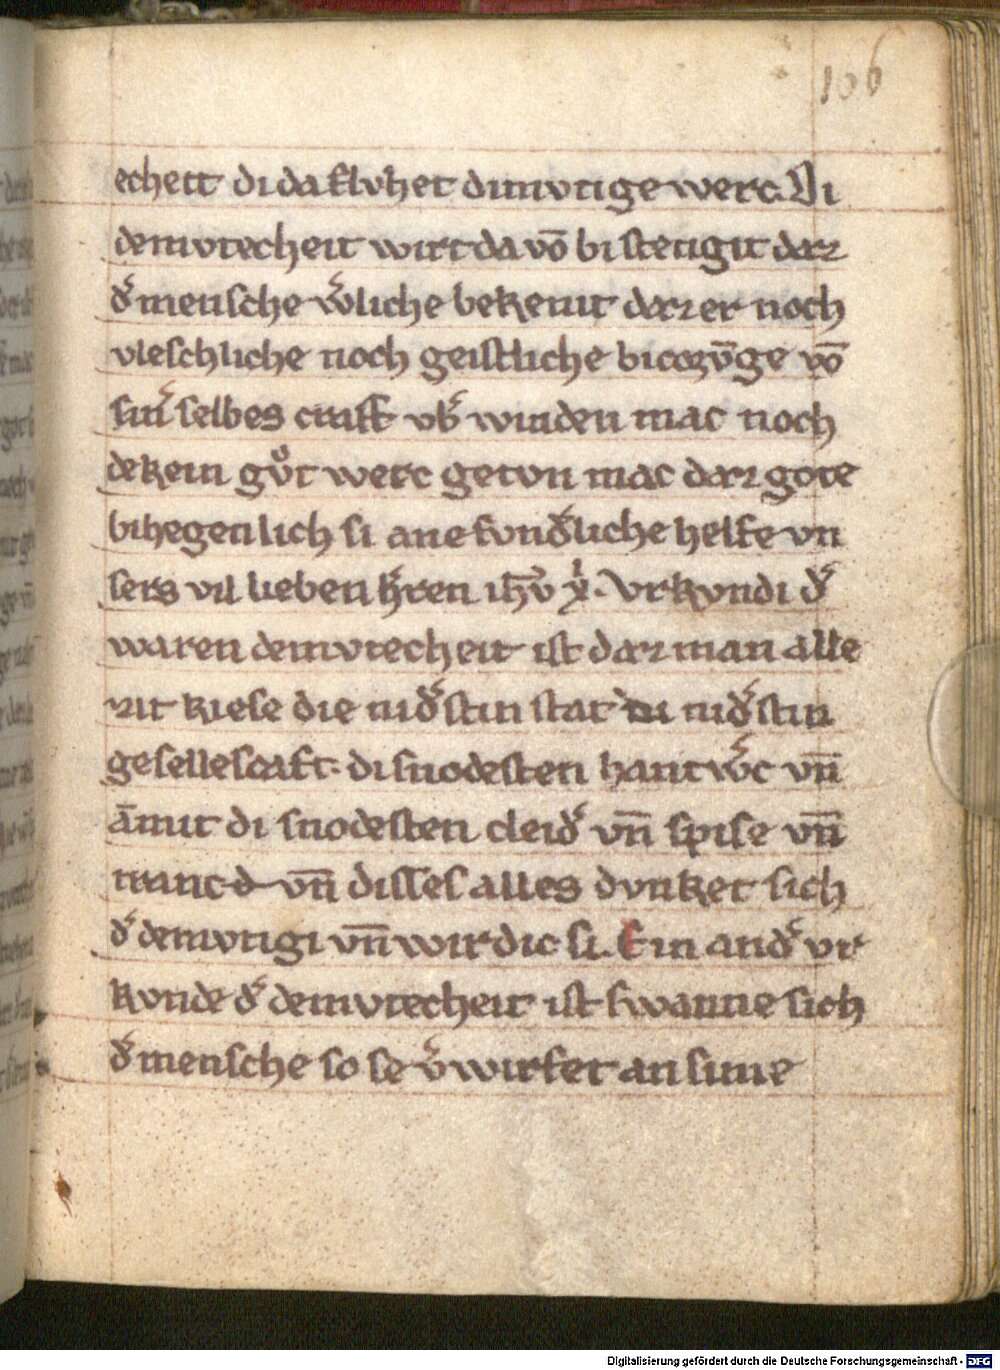 106
echeit di da flvhet dimvtige werc. Di
demvtecheit wirt da vō bi stetigit daz
d᷑ mensche w᷑liche bekennt daz er noch
vleschliche noch geistliche bicorv̄ge vō
sin᷑ selbes craft vb᷑ winden mac noch
dekein gvͦt werc getvn mac daz gote
bihegenlich si ane svnd᷑liche helfe vn
sers vil lieben h᷑ren ih̄v xͥ. Vrkvndi d᷑
waren demvtecheit ist daz man alle
zit kiese die nid᷑stin stat di nid᷑stin
gesellescaft. di snodesten hantw᷑c vn̄
āmit di snodesten cleid᷑ vn̄ spise vn̄
tranc vn̄ disses alles dvnket sich
d᷑ demvtigi vn̄ wirdic si. Ein and᷑ vr
kvnde d᷑ demvtecheit ist swanne sich
d᷑ mensche so se v᷑wirfet an sime
Digitalisierung gefördert durch die Deutsche Forschungsgemeinschaft - DFG